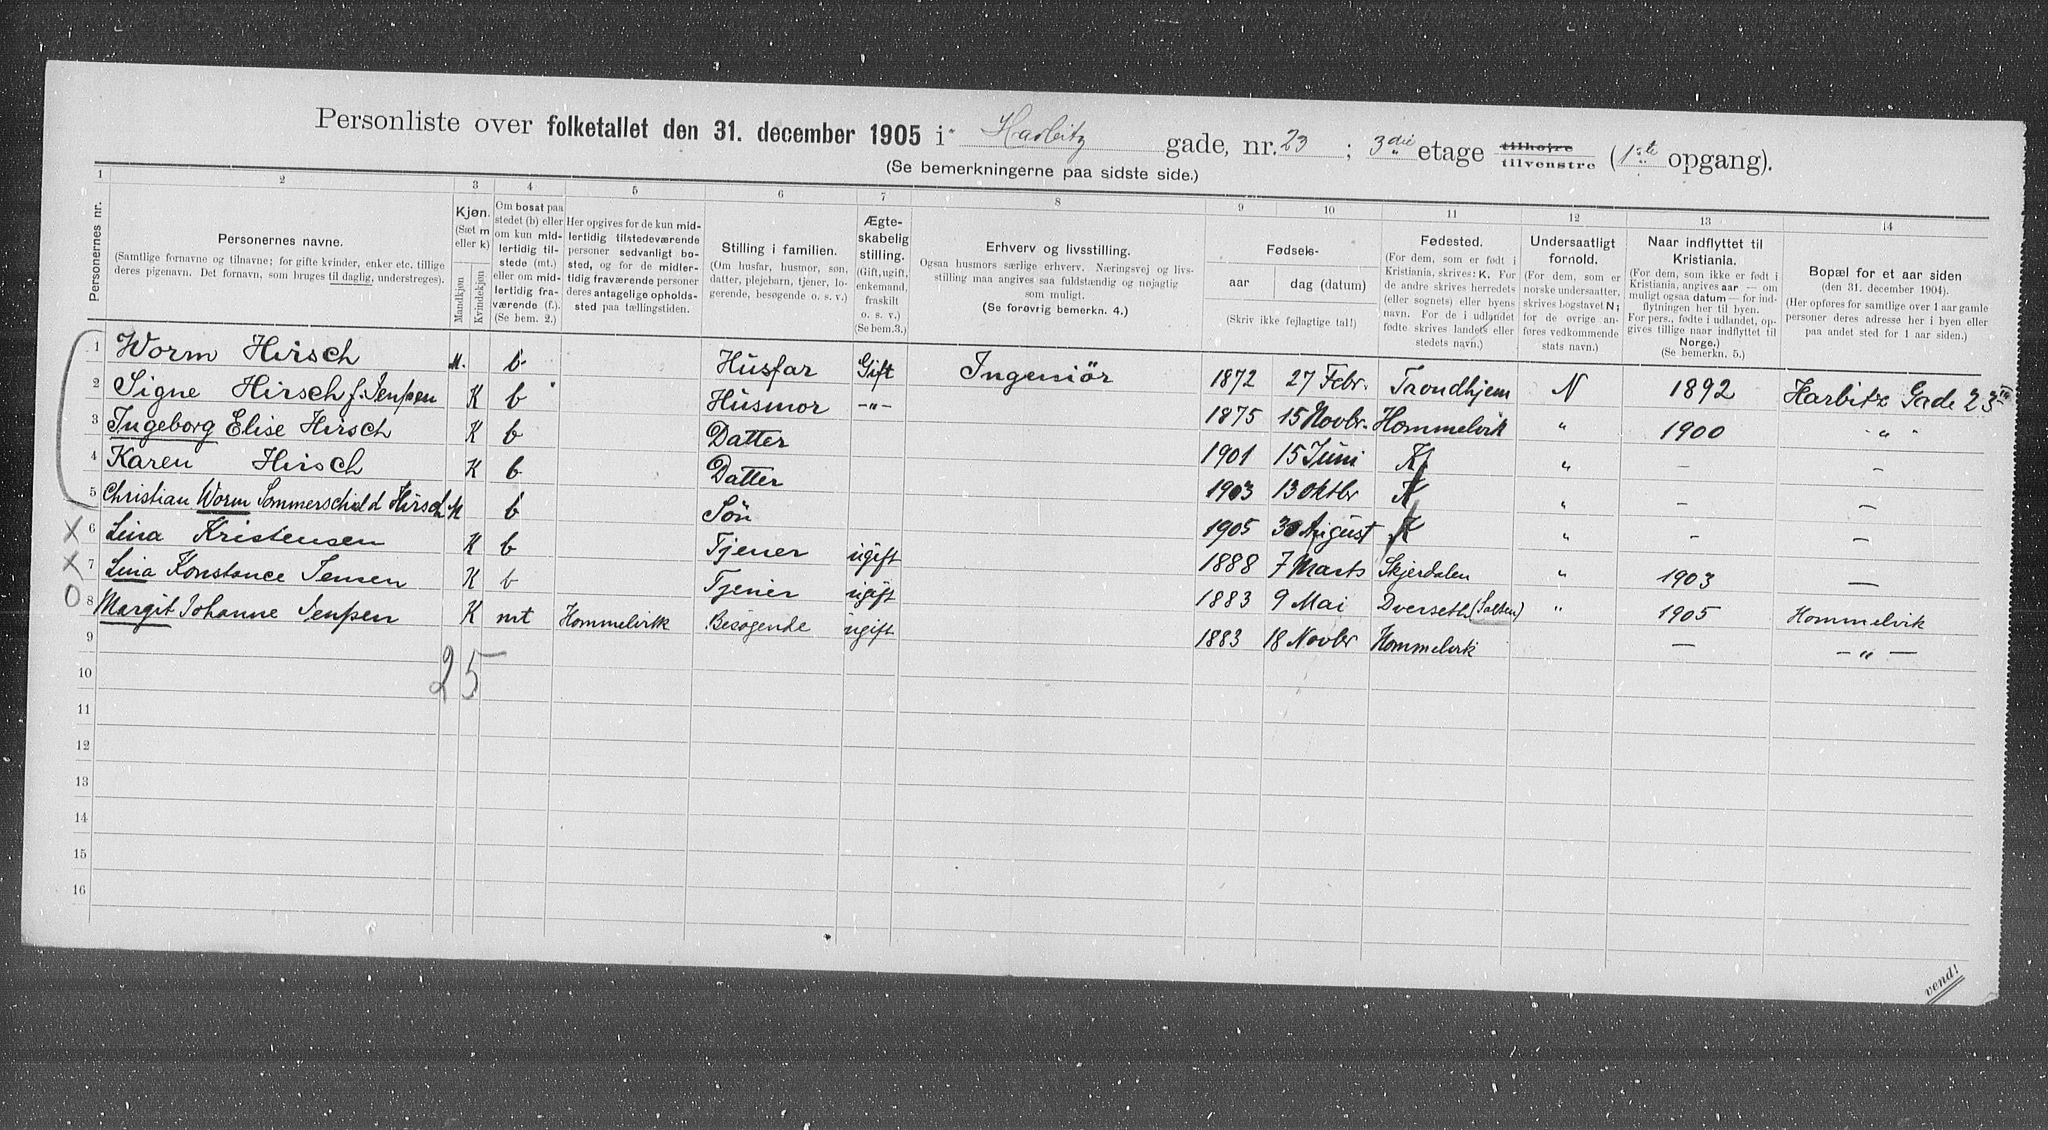 Personliste over folketallet den 31. december 1905 i Harbitz gade, nr. 23 ; 3die etage tilhøjre tilvenstre (1ste opgang).
(Se bemerkningerne paa sidste side.)
1 2 3 4 5 6 7 8 9 10 11 12 13 14
Personernes nr.
Personernes navne.
(Samtlige fornavne og tilnavne; for gifte kvinder, enker etc. tillige
deres pigenavn. Det fornavn, som bruges til daglig, understreges).
Kjøn.
(Sæt m
eller k)
Mandkjøn
Kvindekjøn
Om bosat paa
stedet (b) eller
om kun mid-
lertidig til-
stede (mt.)
eller om mid-
lertidig fra-
værende (f.).
(Se bem. 2.)
Her opgives for de kun mid-
lertidig tilstedeværende
personer sedvanligt bo-
sted, og for de midler-
tidig fraværende personer
deres antagelige opholds-
sted paa tællingstiden.
Stilling i familien.
(Om husfar, husmor, søn,
datter, plejebarn, tjener, lo-
gerende, besøgende o. s. v.)
Ægte-
skabelig
stilling.
(Gift, ugift,
enkemand,
fraskilt
o. s. v.)
(Se bem.3.)
Erhverv og livsstilling.
Ogsaa husmors særlige erhverv. Næringsvej og livs-
stilling maa angives saa fuldstændig og nøjagtig
som muligt.
(Se forøvrig bemerkn. 4.)
Fødsels-
aar dag (datum)
(Skriv ikke fejlagtige tal!)
Fødested.
(For dem, som er født i
Kristiania, skrives: K. For
de andre skrives herredets
(eller sognets) eller byens
navn. For de i udlandet
fødte skrives landets eller
stedets navn.)
Undersaatligt
fornold.
(For dem, som er
norske undersaatter,
skrives bogstavet N;
for de øvrige an-
føres vedkommende
stats navn.)
Naar indflyttet til
Kristiania.
(For dem, som ikke er født i
Kristiania, angives aar — om
muligt ogsaa datum — for ind-
flytningen her til byen.
For pers., fødte i udlandet, op-
gives tillige naar indflyttet til
Norge.)
(Se bemerkn. 5.)
Bopæl for et aar siden
(den 31. december 1904.)
(Her opføres for samtlige over 1 aar gamle
personer deres adresse her i byen eller
paa andet sted for 1 aar siden.)
1 Worm Hirsch M. b Husfar Gift Ingeniör 1872 27 Febr. Trondhjem N 1892 Harbitz Gade 23
2 Signe Hirsch f. Jenssen K b Husmor -"- 1875 15 Novbr. Hommelvik " 1900 "
3 Ingeborg Elise Hirsch K b Datter 1901 15 Juni K " — —
4 Karen Hirsch K b Datter 1903 13 Oktbr K " — —
5 Christian Worm Sommerschield Hirsch M b Sön 1905 30 August K " — —
X 6 Lina Kristensen K b Tjener ugift 1888 7 Marts Skjerdalen " 1903 —
X 7 Lina Konstance Jensen K b Tjener ugift 1883 9 Mai Dverseth (Salten) " 1905 Hommelvik
O 8 Margit Johanne Jenssen K mt Hommelvik Besøgende ugift 1883 18 Novbr Hommelvik — — " —
9
25
10
11
12
13
14
15
16
vend!